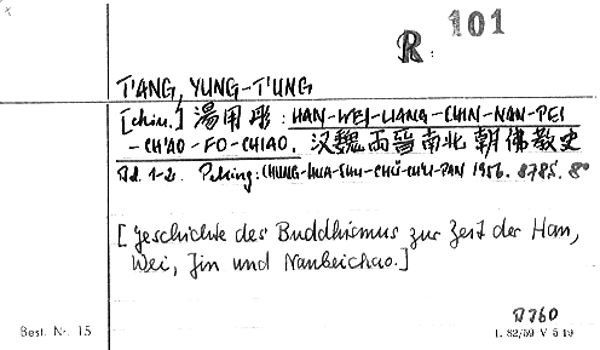 R: 101
T'ANG, YUNG-T'UNG
[chin.] 湯用彤: HAN-WEI-LIANG-CHIN-NAN-PEI
-CH'AO-FO-CHIAO. 汉魏両晋南北朝佛教史
Bd. 1-2. Peking: CHUNG-HUA-SHU-CHÜ-CH'U-PAN 1956. 878S. 8°
[Geschichte des Buddhismus zur Zeit der Han,
Wei, Jin und Nanbeichao.]
Best. Nr. 15
L 82/59 V 5 19